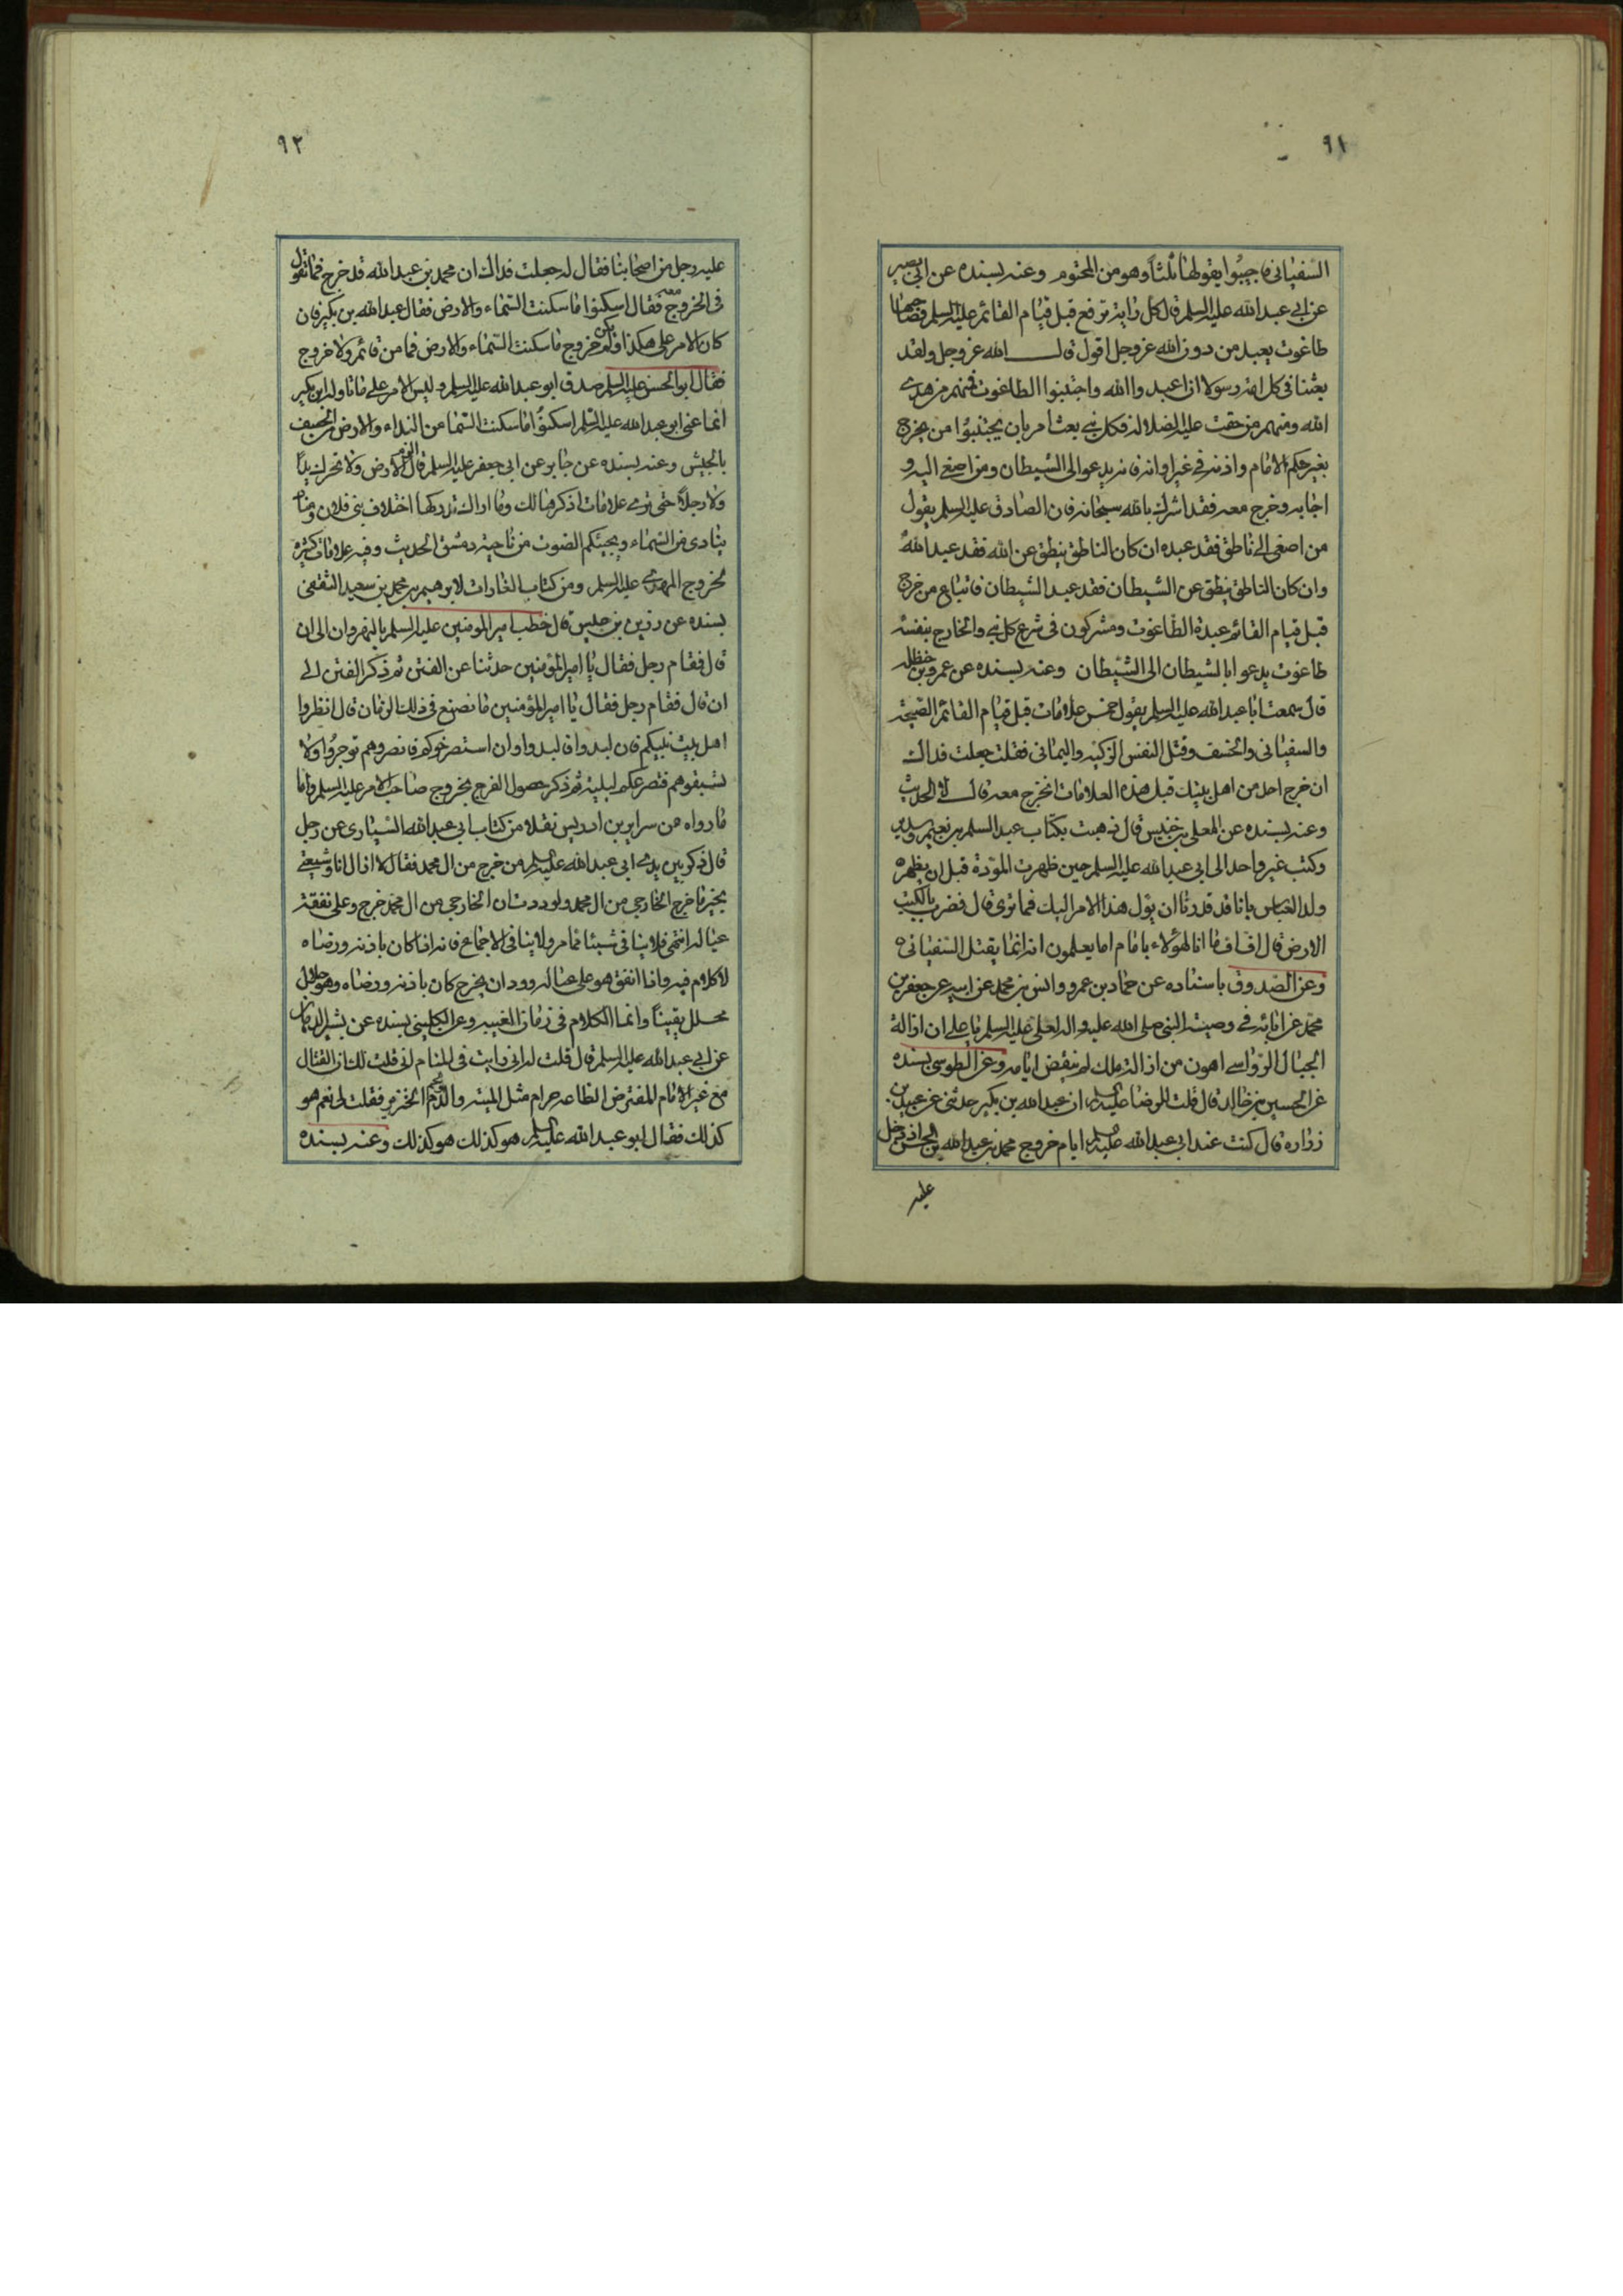 ٩١
السفیانی فاجیبوا یقولها ثلثا وهو من المحتوم وعنه بسنده عن ابی بصیر
عن ابی عبدالله علیه السلم قال کل رایة ترفع قبل قیام القائم علیه السلم فصاحبها
طاغوت یعبد من دون الله عزوجل اقول قال الله عزوجل ولقد
بعثنا فی کل امة رسولا ان اعبدوا الله واجتنبوا الطاغوت فمنهم من هدی
الله ومنهم من حقت علیه الضلالة فکل نبی بعث امر بان یجتنبوا من یخرج
بغیر حکم الامام واذنه فی غیر اوانه فانه یدعو الی الشیطان ومن اصغی الیه و
اجابه وخرج معه فقد اشرک بالله سبحانه فان الصادق علیه السلم یقول
من اصغی الی ناطق فقد عبده ان کان الناطق ینطق عن الله فقد عبد الله
وان کان الناطق ینطق عن الشیطان فقد عبد الشیطان فاتباع من خرج
قبل قیام القائم عبدة الطاغوت ومشرکون فی شرع کل نبی والخارج بنفسه
طاغوت یدعو ابا لشیطان الی الشیطان وعنه بسنده عن عمرو بن حنظله
قال سمعت ابا عبدالله علیه السلم یقول خمس علامات قبل قیام القائم الصیحة
والسفیانی والخسف وقتل النفس الزکیه والیمانی فقلت جعلت فداک
ان خرج احد من اهل بیتک قبل هذه العلامات انخرج معه قال لا الحدیث
وعنه بسنده عن المعلی بن خنیس قال ذهبت بکتاب عبد السلم بن نعیم وسدیر
وکتب غیر واحد الی ابی عبدالله علیه السلم حین ظهرت المسودة قبل ان یظهر
ولد العباس بانا قد قدرنا ان یؤل هذا الامر الیک فما تری قال فضرب بالکتب
الارض قال اف اف ما انا لهؤلاء بامام اما یعلمون انه انما یقتل السفیانی
وعن الصدوق باسناده عن حماد بن عمرو وانس بن محمد عن ابیه عن جعفر بن
محمد عن ابائه فی وصیة النبی صلی الله علیه واله لعلی علیه السلم یا علی ان ازالة
الجبال الرواسی اهون من ازالة ملک لم ینقض ایامه وعن الطوسی بسنده
عن الحسین بن خالد قال قلت للرضا علیه السلم ان عبدالله بن بکیر حدثنی عن عبید بن
زراره قال کنت عند ابی عبدالله علیه السلم ایام خروج محمد بن عبدالله بن الحسن اذ دخل
علیه
٩٢
علیه رجل من اصحابنا فقال له جعلت فداک ان محمد بن عبدالله قد خرج فما تقول
فی الخروج معه فقال اسکنوا ما سکنت السماء والارض فقال عبدالله بن بکیر فان
کان الامر علی هکذا ولم یکن خروج ما سکنت السماء والارض فما من قائم ولا خروج
فقال ابوالحسن علیه السلم صدق ابو عبدالله علیه السلم ولیس الامر علی ما تاوله ابن بکیر
انما عنی ابو عبدالله علیه السلم اسکنوا ما سکنت السما من النداء والارض من الخسف
بالجیش وعنه بسنده عن جابر عن ابی جعفر علیه السلم قال الزم الارض ولا تحرک یدا
ولا رجلا حتی تری علامات اذکرها لک وما اراک تدرکها اختلاف بنی فلان ومناد
ینادی من السماء ویجیئکم الصوت من ناحیة دمشق الحدیث وفیه علامات کثیره
لخروج المهدی علیه السلم ومن کتاب الغارات لابرهیم بن محمد بن سعید الثقفی
بسنده عن رزین بن حبیس قال خطب امیر المومنین علیه السلم بالنهروان الی ان
قال فقام رجل فقال یا امیر المؤمنین حدثنا عن الفتن ثم ذکر الفتن الی
ان قال فقام رجل فقال یا امیر المؤمنین ما نصنع فی ذلک الزمان قال انظروا
اهل بیت نبیکم فان لبدوا فالبدوا وان استصرخوکم فانصروهم توجروا ولا
تسبقوهم فتصرعکم البلیة ثم ذکر حصول الفرج بخروج صاحب الامر علیه السلم واما
ما رواه من سرایر بن ادریس نقلا من کتاب ابی عبدالله السیاری عن رجل
قال ذکر بین یدی ابی عبدالله علیه السلم من خرج من ال محمد فقال لا ازال انا وشیعتی
بخیر ما خرج الخارجی من ال محمد ولوددت ان الخارجی من ال محمد خرج وعلی نفقة
عیاله انتهی فلا ینافی شیئا مما مر ولا ینافی الاجماع فانه اذا کان باذنه ورضاه
لا کلام فیه واذا انفق هو علی عیاله وود ان یخرج کان باذنه ورضاه وهو حلال
محلل یقینا وانما الکلام فی زمان الغیبه وعن الکلینی بسنده عن بشیر الدهان
عن ابی عبدالله علیه السلم قال قلت له انی رایت فی المنام انی قلت لک ان القتال
مع غیر الامام المفترض الطاعه حرام مثل المیته والدم ولحم الخنزیر فقلت لی نعم هو
کذلک فقال ابو عبدالله علیه السلم هو کذلک هو کذلک وعنه بسنده